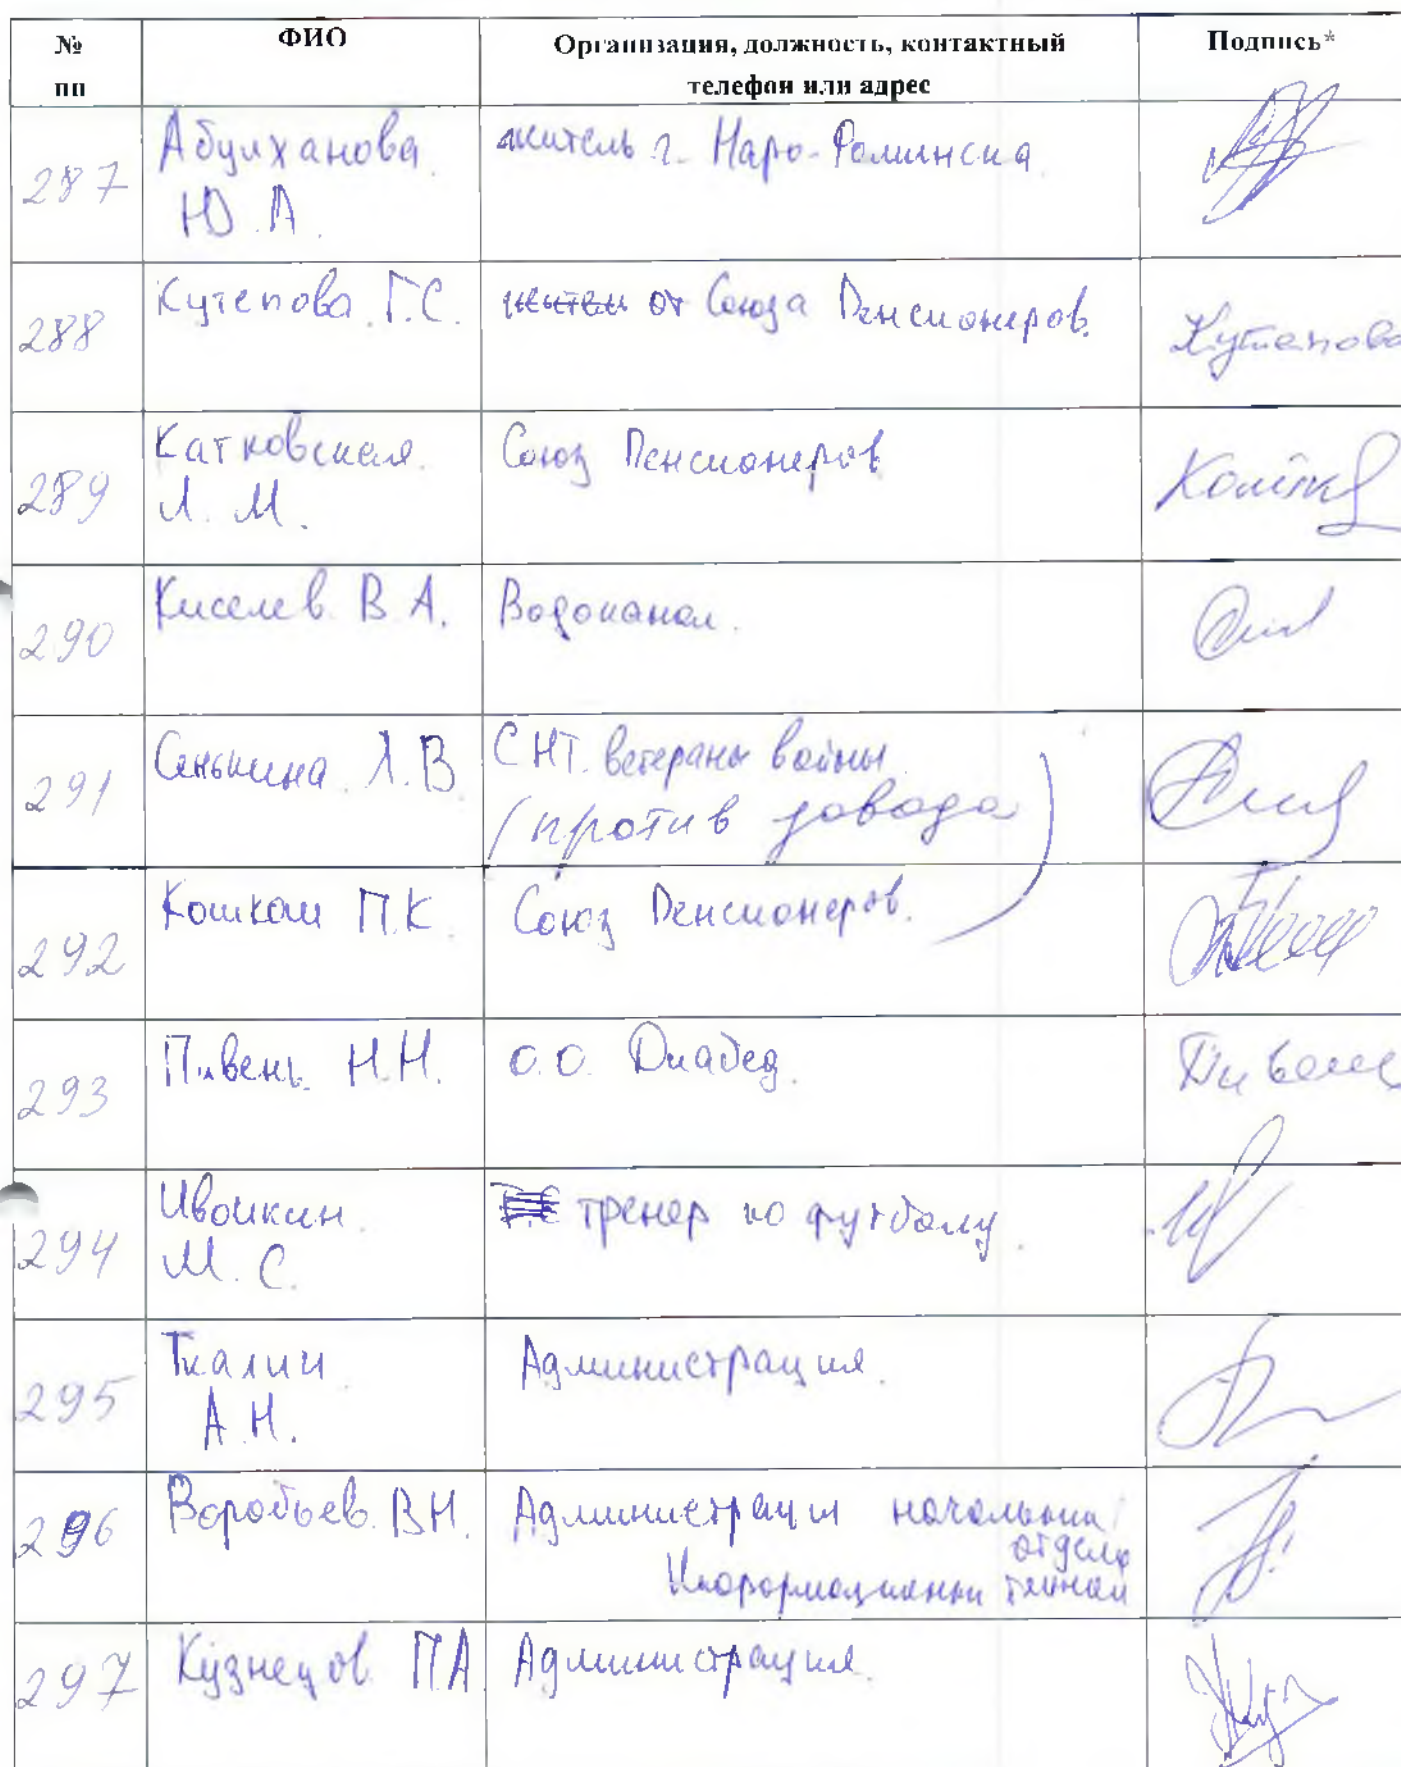 № пп ФИО Организация, должность, контактный телефон или адрес Подпись*
287 Абулханова Ю.А. житель г. Наро-Фоминска
288 Кутепова Г.С. от Союза Пенсионеров. Кутепова
289 Катковская Л.М. Союз Пенсионеров
290 Киселев В.А. Водоканал.
291 Сенькина Л.В СНТ. ветераны войны
(против завода)
292 П.К. Союз Пенсионеров.
293 Пивень Н.Н. О.О. Диабед.
294 Ивойкин М.С. тренер по футболу.
295 А.Н. Администрация.
296 Воробьев В.Н. Администрация
отдела
297 Кузнецов П.А Администрация.